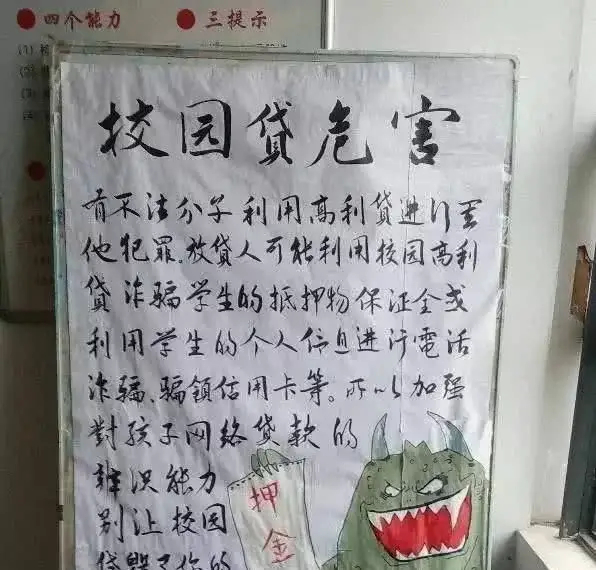 四个能力
三提示
校园贷危害
有不法分子利用高利贷进行其
他犯罪。放贷人可能利用校园高利
贷诈骗学生的抵押物保证金或
利用学生的个人信息进行電话
诈骗、骗領信用卡等。所以加强
對孩子网络贷款的
辨识能力
别让校园
贷毁了你的
押金